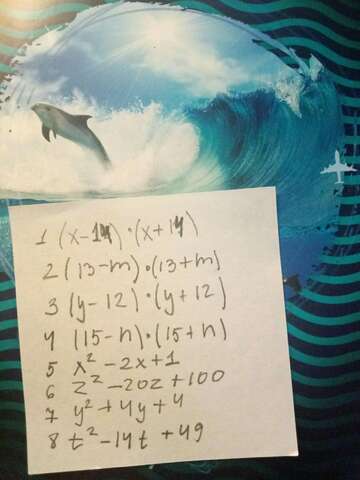 1 (x-14)·(x+14)
2 (13-m)·(13+m)
3 (y-12)·(y+12)
4 (15-n)·(15+n)
5 x² -2x+1
6 z² -20z+100
7 y² +4y+4
8 t² -14t +49